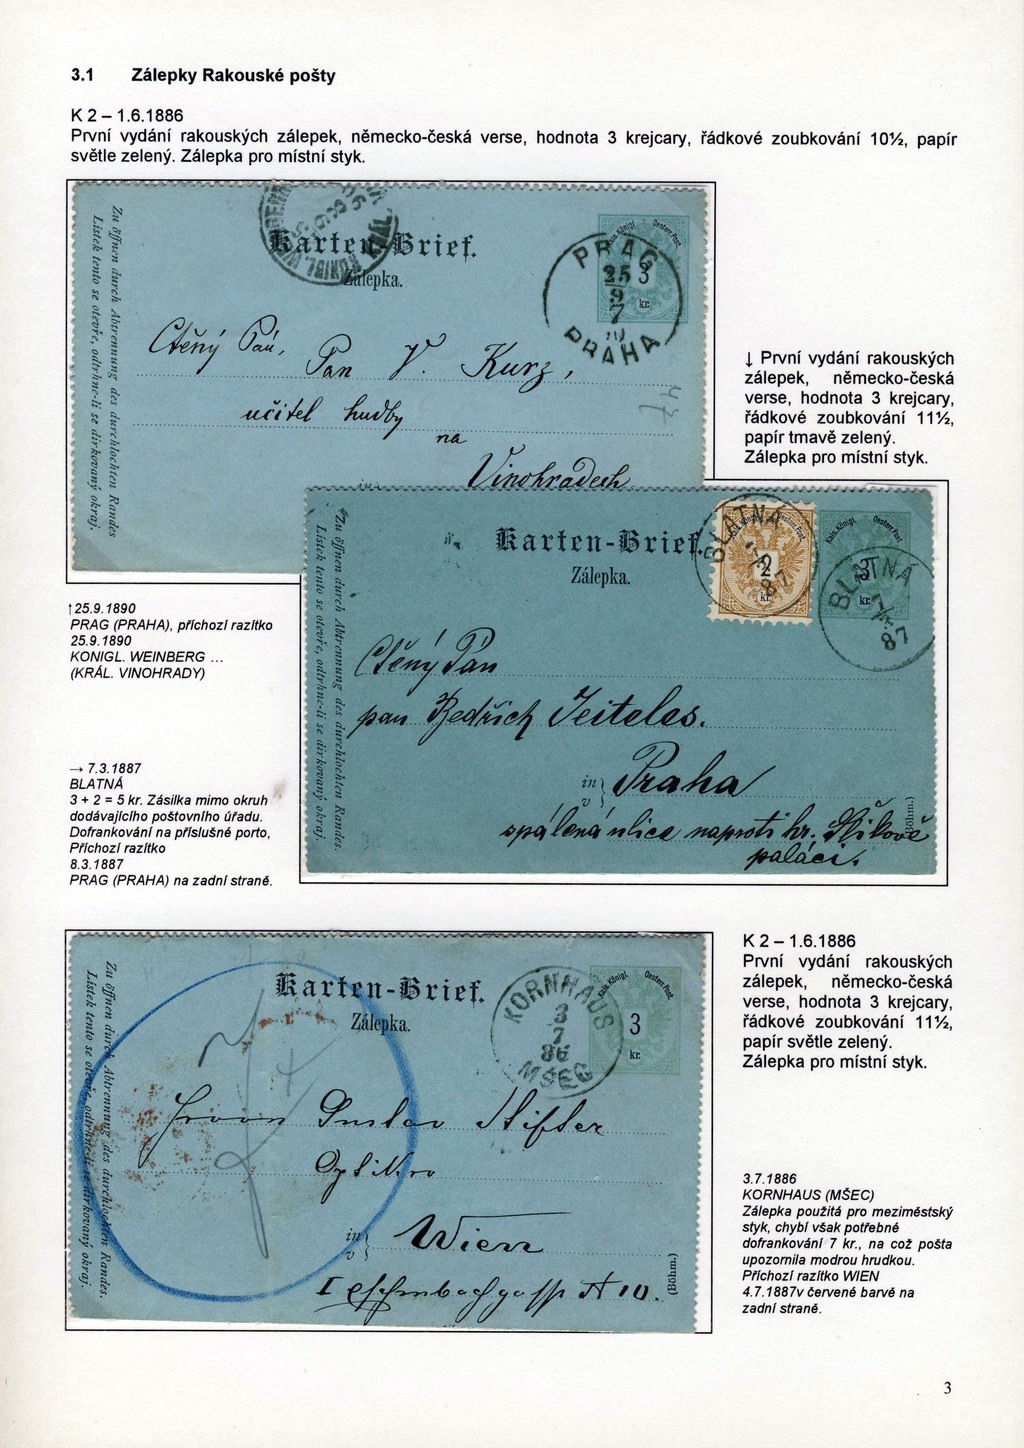 3.1 Zálepky Rakouské pošty
K 2 – 1.6.1886
První vydání rakouských zálepek, německo-česká verse, hodnota 3 krejcary, řádkové zoubkování 10½, papír
světle zelený. Zálepka pro místní styk.
Zu öffnen durch Abtrennung des durchlochten Randes
Lístek tento se otevře, odtrhne-li se dírkovaný okraj.
Karten-Brief.
Zálepka.
Kais. Königl. Oesterr. Post.
3
kr.
PRAG
25
9
7
PRAHA
Ctěný Pán,
Pan V. Kurz,
učitel hudby
na
Vinohradech
47
↓ První vydání rakouských
zálepek, německo-česká
verse, hodnota 3 krejcary,
řádkové zoubkování 11½,
papír tmavě zelený.
Zálepka pro místní styk.
Zu öffnen durch Abtrennung des durchlochten Randes.
Lístek tento se otevře, odtrhne-li se dírkovaný okraj.
Karten-Brief.
Zálepka.
2
kr.
Kais. Königl. Oesterr. Post.
3
kr.
BLATNA
87
BLATNA
7
87
Ctěný Pán
pan Bedřich Jeiteles.
in
v
Praha
spálená ulice naproti hr.
paláci.
(Böhm.)
↑25.9.1890
PRAG (PRAHA), příchozí razítko
25.9.1890
KONIGL. WEINBERG ...
(KRÁL. VINOHRADY)
→ 7.3.1887
BLATNÁ
3 + 2 = 5 kr. Zásilka mimo okruh
dodávajícího poštovního úřadu.
Dofrankování na příslušné porto,
Příchozí razítko
8.3.1887
PRAG (PRAHA) na zadní straně.
Zu öffnen durch Abtrennung des durchlochten Randes.
Lístek tento se otevře, odtrhne-li se dírkovaný okraj.
Karten-Brief.
Zálepka.
Kais. Königl. Oesterr. Post.
3
kr.
KORNHAUS
3
7
86
MŠEC
Herrn Gustav Stifter
Optiker
in
v
Wien
I Eschenbachgasse № 10.
(Böhm.)
K 2 – 1.6.1886
První vydání rakouských
zálepek, německo-česká
verse, hodnota 3 krejcary,
řádkové zoubkování 11½,
papír světle zelený.
Zálepka pro místní styk.
3.7.1886
KORNHAUS (MŠEC)
Zálepka použitá pro meziměstský
styk, chybí však potřebné
dofrankování 7 kr., na což pošta
upozornila modrou hrudkou.
Příchozí razítko WIEN
4.7.1887v červené barvě na
zadní straně.
3